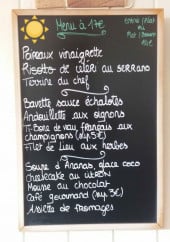 Menu à 17€
Entrée/Plat
ou
Plat/Dessert
Poireaux vinaigrette
Risotto de céleri au serrano
Terrine du chef
Bavette sauce échalotes
Andouillette aux oignons
T-Bone de veau français aux
champignons (sup.5€)
Filet de lieu aux herbes
Soupe d'Ananas, glace coco
Cheesecake au citron
Mousse au chocolat
Café gourmand (sup.3€)
Assiette de fromages